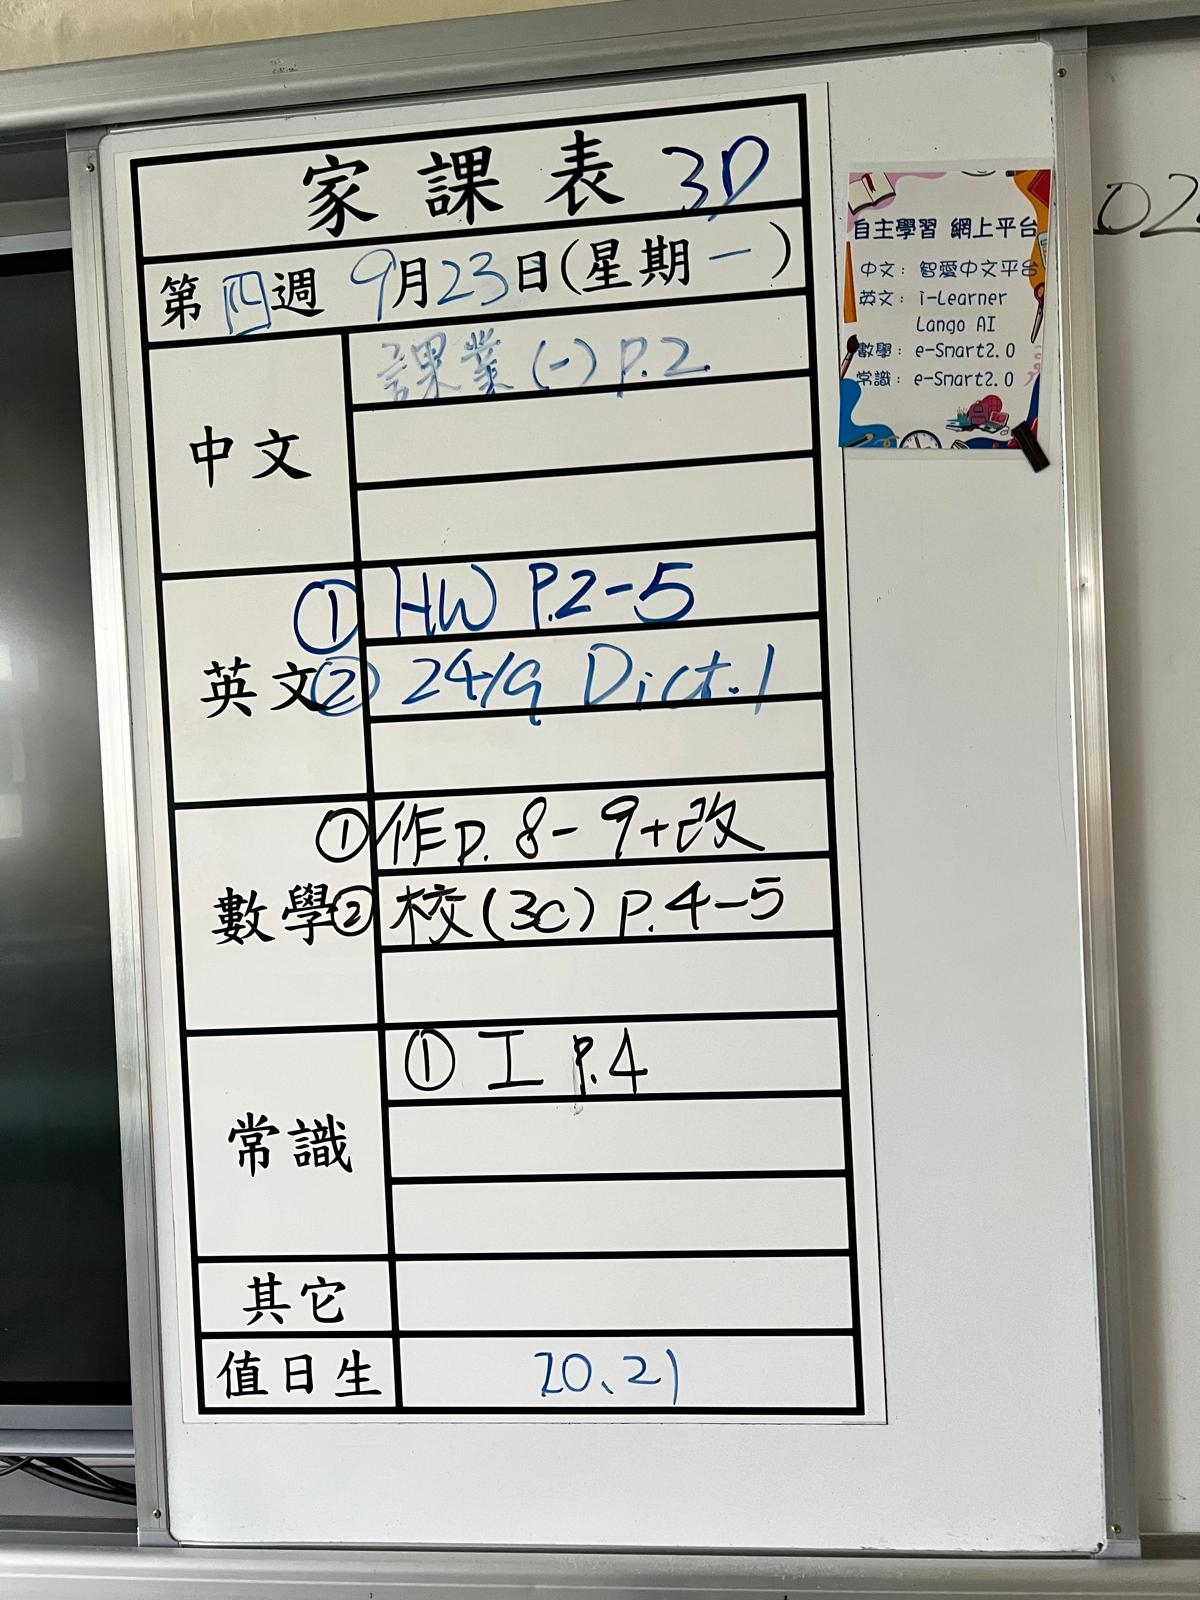 家課表 3D
第四週 9月23日(星期一)
中文
課業(一) P.2
英文
① HW P.2-5
② 24/9 Dict.1
數學
① 作p. 8-9+改
② 校(3C) P.4-5
常識
① 工 P.4
其它
值日生
20、21
自主學習 網上平台
中文: 智愛中文平台
英文: i-Learner
Lango AI
數學: e-Smart2.0
常識: e-Smart2.0
02